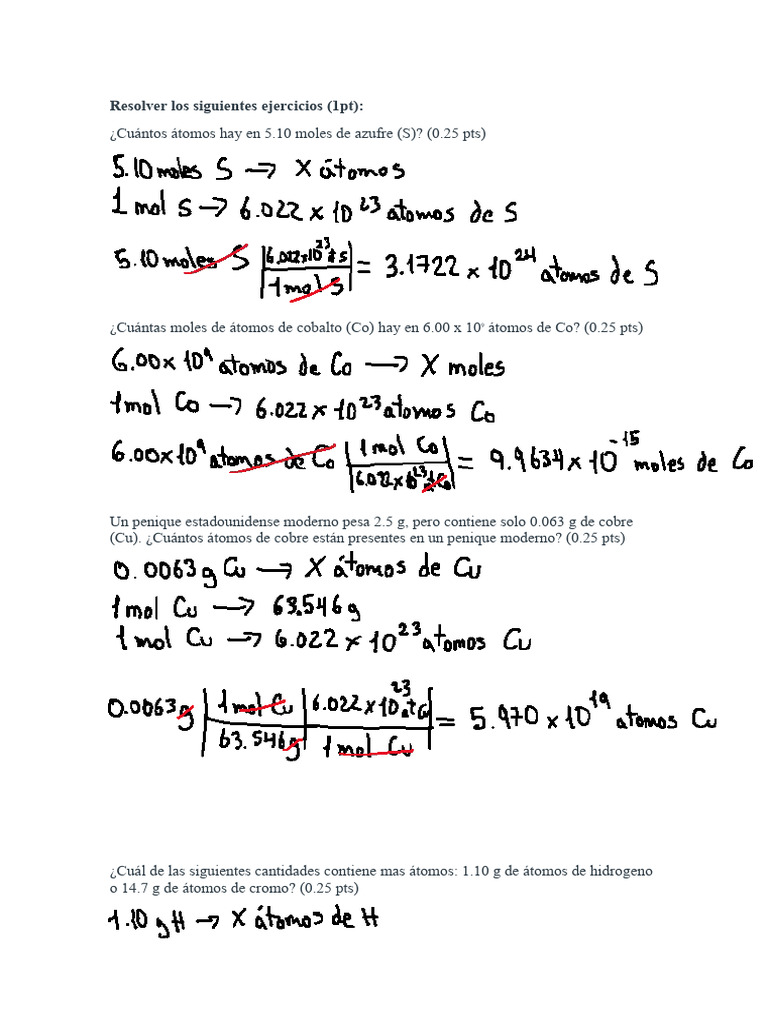 Resolver los siguientes ejercicios (1pt):
¿Cuántos átomos hay en 5.10 moles de azufre (S)? (0.25 pts)
5.10 moles S → X átomos
1 mol S → 6.022 x 10²³ atomos de S
5.10 moles S | 6.022x10²³ at S / 1 mol S | = 3.1722 x 10²⁴ atomos de S
¿Cuántas moles de átomos de cobalto (Co) hay en 6.00 x 10⁹ átomos de Co? (0.25 pts)
6.00x 10⁹ atomos de Co → X moles
1 mol Co → 6.022 x 10²³ atomos Co
6.00x10⁹ atomos de Co | 1 mol Co / 6.022 x 10²³ at Co | = 9.9634 x 10⁻¹⁵ moles de Co
Un penique estadounidense moderno pesa 2.5 g, pero contiene solo 0.063 g de cobre
(Cu). ¿Cuántos átomos de cobre están presentes en un penique moderno? (0.25 pts)
0.0063 g Cu → X átomos de Cu
1 mol Cu → 63.546 g
1 mol Cu → 6.022 x 10²³ atomos Cu
0.0063 g | 1 mol Cu / 63.546 g | 6.022 x 10²³ at Cu / 1 mol Cu | = 5.970 x 10¹⁹ atomos Cu
¿Cuál de las siguientes cantidades contiene mas átomos: 1.10 g de átomos de hidrogeno
o 14.7 g de átomos de cromo? (0.25 pts)
1.10 g H → X átomos de H